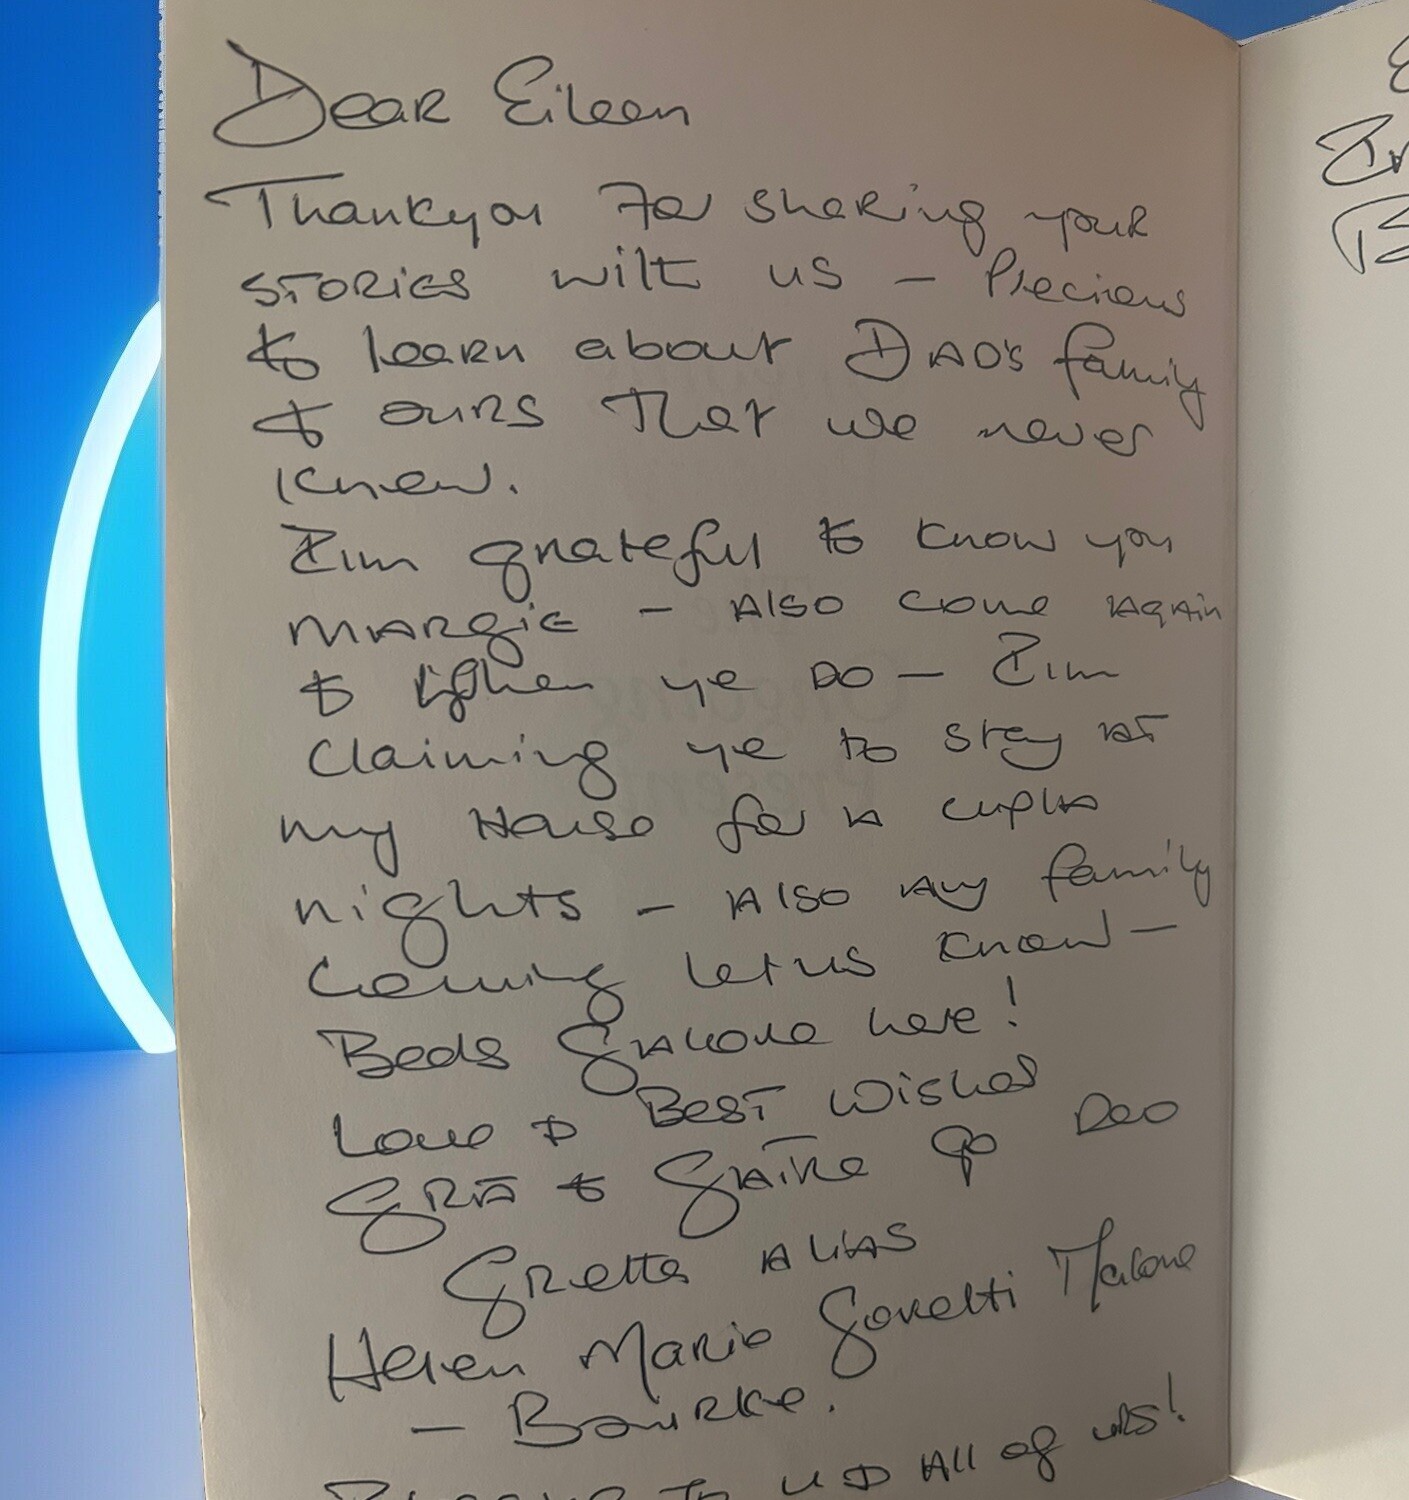 Dear Eileen
Thankyou For sharing your
STORIES with us – Precious
to learn about DAD'S family
& OURS That we never
Knew.
I'm grateful to know you
MARGIE – Also come Again
& When ye DO – I'm
Claiming ye to stay AT
my House for A cupla
nights – Also Any family
Coming let us know –
Beds Galore here!
Love & BEST Wishes
GRÁ & Gráine go Deo
Gretta ALIAS
Helen Maria Goretti Malone
– Bourke.
to U & All of US!